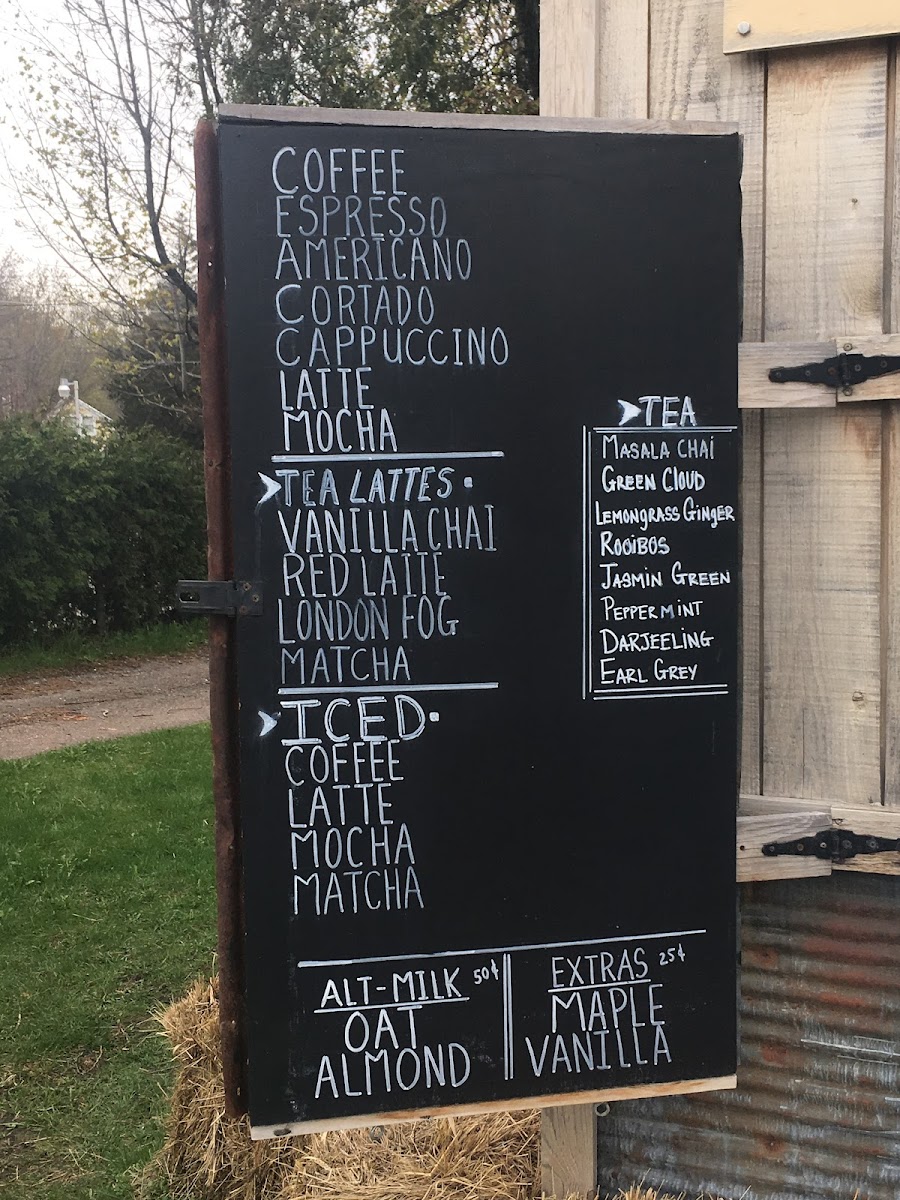 COFFEE
ESPRESSO
AMERICANO
CORTADO
CAPPUCCINO
LATTE
MOCHA
TEA LATTES
VANILLA CHAI
RED LATTE
LONDON FOG
MATCHA
ICED
COFFEE
LATTE
MOCHA
MATCHA
TEA
MASALA CHAI
GREEN CLOUD
LEMONGRASS GINGER
ROOIBOS
JASMIN GREEN
PEPPERMINT
DARJEELING
EARL GREY
ALT-MILK 50¢
OAT
ALMOND
EXTRAS 25¢
MAPLE
VANILLA